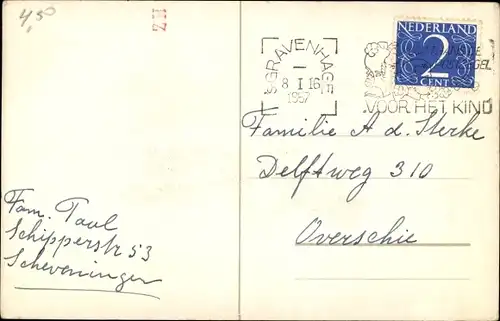 4,50
HZ
'S GRAVENHAGE
8 I 16
1957
VOOR HET KIND
NEDERLAND
2
CENT
Familie A d. Sterke
Delftweg 310
Overschie
Fam. Paul
Schipperstr 53
Scheveningen